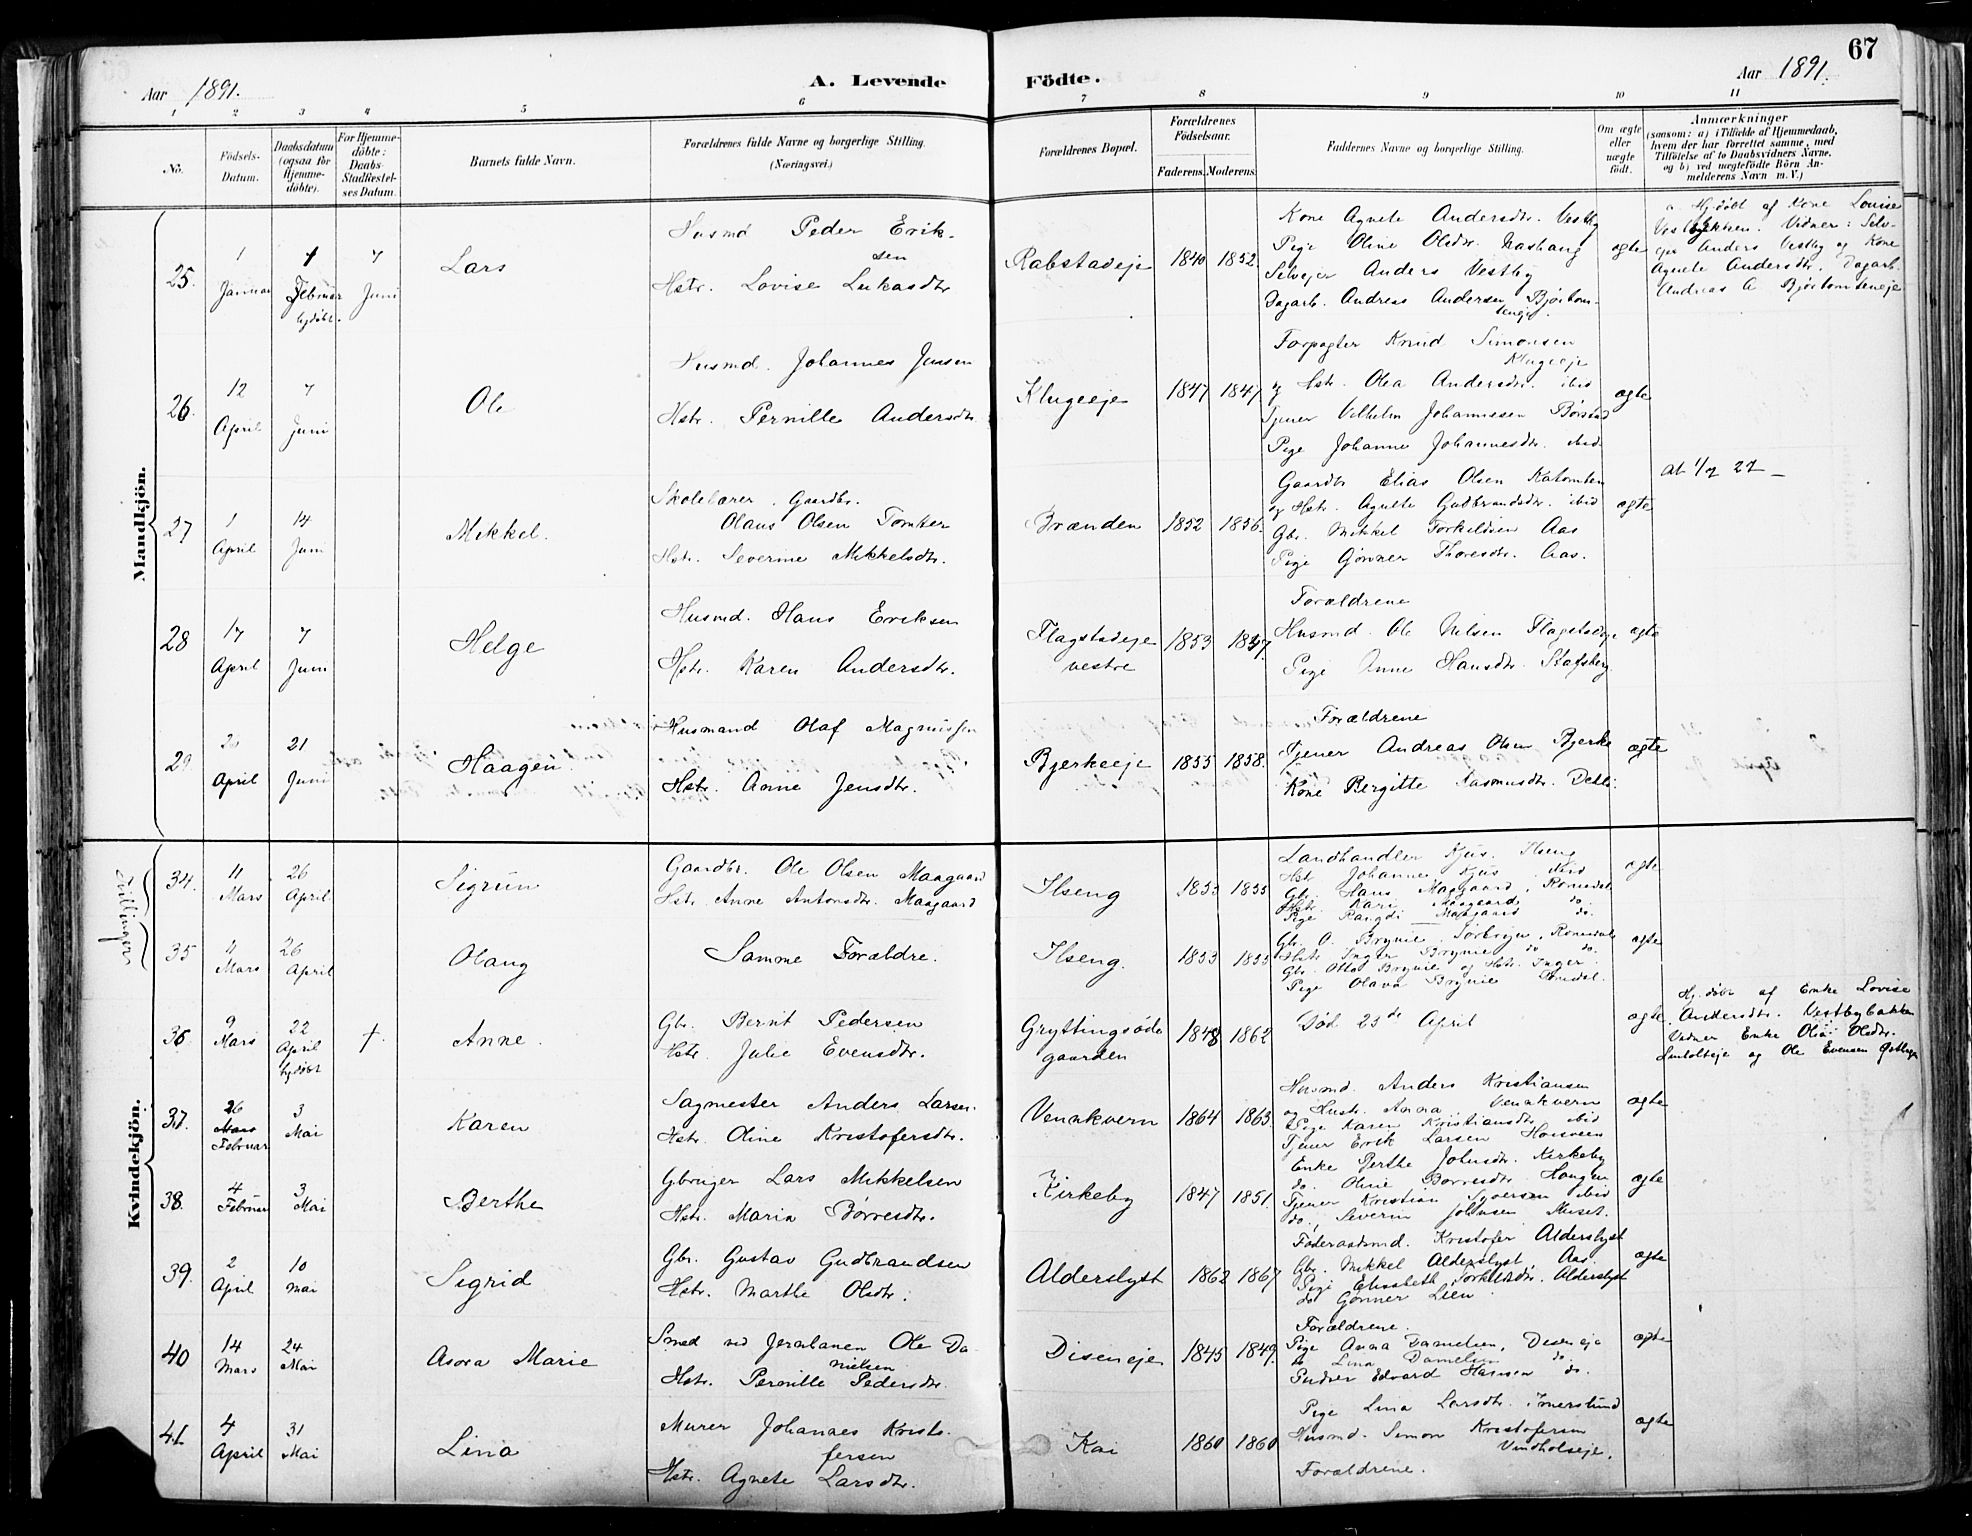 67
Aar 1891.
A. Levende Födte.
Aar 1891.
1 2 3 4 5 6 7 8 9 10 11
No.
Födsels-Datum.
Daabsdatum (ogsaa for Hjemme-döbte).
For Hjemme-döbte: Daabs-Stadfæstel-ses Datum.
Barnets fulde Navn.
Forældrenes fulde Navne og borgerlige Stilling. (Næringsvei.)
Forældrenes Bopæl.
Forældrenes Födselsaar.
Faderens. Moderens.
Faddernes Navne og borgerlige Stilling.
Om ægte eller uægte födt.
Anmærkninger
(saasom: a) i Tilfælde af Hjemmedaab, hvem der har forrettet samme, med Tilföielse af to Daabsvidners Navne, og b) ved uægtefödte Börn An-melderens Navn m. V.)
Mandkjön.
25. 1 Januar
Februar hjdøbt.
7 Juni
Lars
Husmd Peder Erik-
sen
Hstr. Lovise Lukasdtr
Rabstadeje 1840 1852.
Kone Agnete Andersdtr. Vestby
Pige Oline Olsdtr.
Selvejer Anders Vestby
Dagarb. Andreas Andersen
ægte
a. Hj.døbt af Kone Lovise
Vestbybakken. Vidner: Selv-
ejer Anders Vestby og Kone
Agnete Andersdtr. Dagarb.
Andreas A
26. 12 April
7 Juni
Ole
Husmd. Johannes Jensen
Hstr. Pernille Andersdtr
Klugeeje 1847 1847
Forpagter Knud Simonsen
Klugeeje
og Hstr. Olea Andersdtr. ibid
Tjener Vilhelm Johannessen Børstad
Pige Johanne Johannesdtr. ibid
ægte
27 1 April
14 Juni
Mikkel.
Skolelærer, Gaardbr.
Olaus Olsen Tomter
Hstr. Severine Mikkelsdtr.
Brænden 1852 1856.
Gaardbr Elias Olsen
og Hstr. Agnete Gudbrandsdtr. ibid
Gbr. Mikkel Torkildsen Aas
Pige Gønner Thoresdtr. Aas.
ægte
28 17 April
7 Juni
Helge
Husmd. Hans Eriksen
Hstr. Karen Andersdtr.
Flagstadeje vestre 1853
Forældrene
Husmd. Ole Nilsen Flagstadeje
Pige Anne Hansdtr.
ægte
29 April
21 Juni
Haagen
Husmand Olaf Magnussen
Hstr. Anne Jensdtr.
Bjerkeeje 1855 1858.
Forældrene
Tjener Andreas Olsen Bjerke
Kone Bergitte Rasmusdtr.
ægte
Kvindekjön.
Tvillinger
34. 11 Mars
26 April
Sigrun
Gaardbr. Ole Olsen Maagaard
Hstr Anne Antonsdtr. Maagaard
Ilseng 1853 1855
Landhandler Kjus. Ilseng
Hstr Johanne Kjus ibid
Gbr. Hans Maagaard, Romedal
Hstr. Kari Maagaard do.
Pige Rangdi Maagaard do.
ægte
35 11 Mars
26 April
Olaug
Samme Forældre.
Ilseng. 1853 1855
Gbr. O. Brynie, Romedal
Hstr Inger Brynie do do.
Gbr. Otto Brynie og Hstr. Inger
Pige Olava Brynie
ægte
36 9 Mars
22 April hjdøbt
†
Anne.
Gbr. Bernt Pedersen
Hstr. Julie Evensdtr.
Gryttingsødegaarden 1848 1862
Død 23de April
ægte
Hj.døbt af Enke Lovise
Andersdtr. Vestbybakken
Vidner Enke Olia Olsdtr.
og Ole Evensen
37. 26 Mars Februar
3 Mai
Karen
Sagmester Anders Larsen.
Hstr. Oline Kristofersdtr.
Venakvern 1864 1863.
Husmd. Anders Kristiansen
og Hustr. Anna Venakvern
Pige Karen Kristiansdtr ibid
Tjener Erik Larsen
ægte
38. 4 Februar
3 Mai
Berthe
Gbruger Lars Mikkelsen
Hstr. Maria Børresdtr.
Kirkeby 1847 1851.
Enke Berthe Johnsdtr. Kirkeby
do. Oline Børresdtr. Haugen
Tjener Kristian Syversen ibid
do. Severin Johnsen
ægte
39. 2 April
10 Mai
Sigrid
Gbr. Gustav Gudbrandsen
Hstr. Marthe Olsdtr.
Alderslyst 1862 1867
Føderaadsmd. Kristofer Alderslyst
Gbr. Mikkel Alderslyst, Aas.
Pige Elisabeth Torkildsdtr. Alderslyst
do Gønner Lien
ægte
40 14 Mars
24 Mai
Asora Marie
Smed ved Jernbanen Ole Da
nielsen
Hstr. Pernille Pedersdtr.
Diseneje 1845 1849.
Forældrene.
Pige Anna Danielsen, Diseneje
do Lina Danielsen do.
Edvard Hansen do.
ægte
41 4 April
31 Mai
Lina
Murer Johannes Kristo-
fersen
Hstr. Agnete Larsdtr.
Kai 1860 1860
Pige Lina Larsdtr. Imerslund
Husmd. Simon Kristofersen
Vindholseje.
Forældrene.
ægte